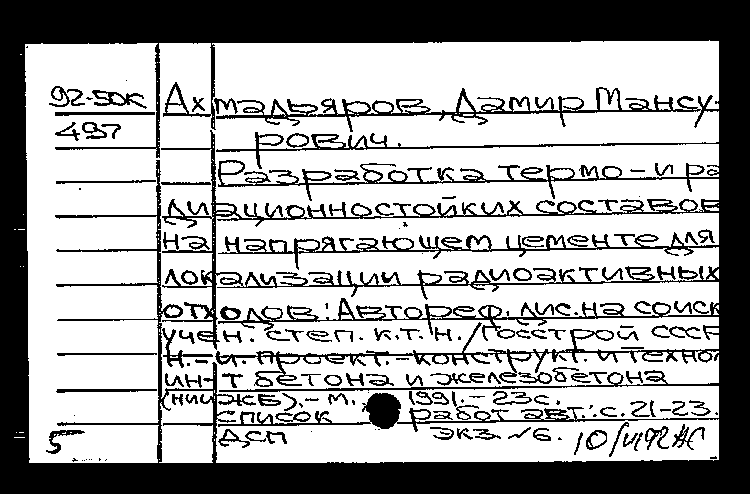 92-50к Ахмадьяров, Дамир Мансу-
497 рович.
Разработка термо- и ра
диационностойких составов
на напрягающем цементе для
локализации радиоактивных
отходов: Автореф. дис. на соиск
учен. степ. к.т.н. / Госстрой СССР
н.-и. проект.-конструкт. и техно
ин-т бетона и железобетона
(НИИЖБ).- М. 1991.- 23с.
список работ авт.: с. 21-23.
5 ДСП экз. №6. 10/VI92